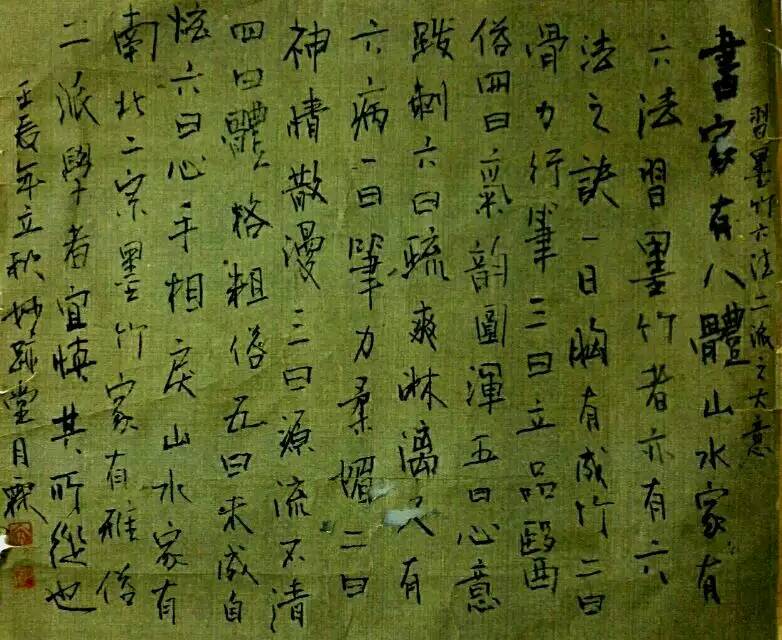 習墨竹六法二派之大意
書家有八體山水家有
六法習墨竹者亦有六
法之訣一曰胸有成竹二曰
骨力行筆三曰立品醫
俗四曰氣韵圓渾五曰心意
跋刺六曰疏爽淋漓又有
六病一曰筆力柔媚二曰
神情散漫三曰源流不清
四曰體格粗俗五曰未成自
炫六曰心手相戾山水家有
南北二宗墨竹家有雅俗
二派學者宜慎其所從也
壬辰年立秋妙跡堂月霖